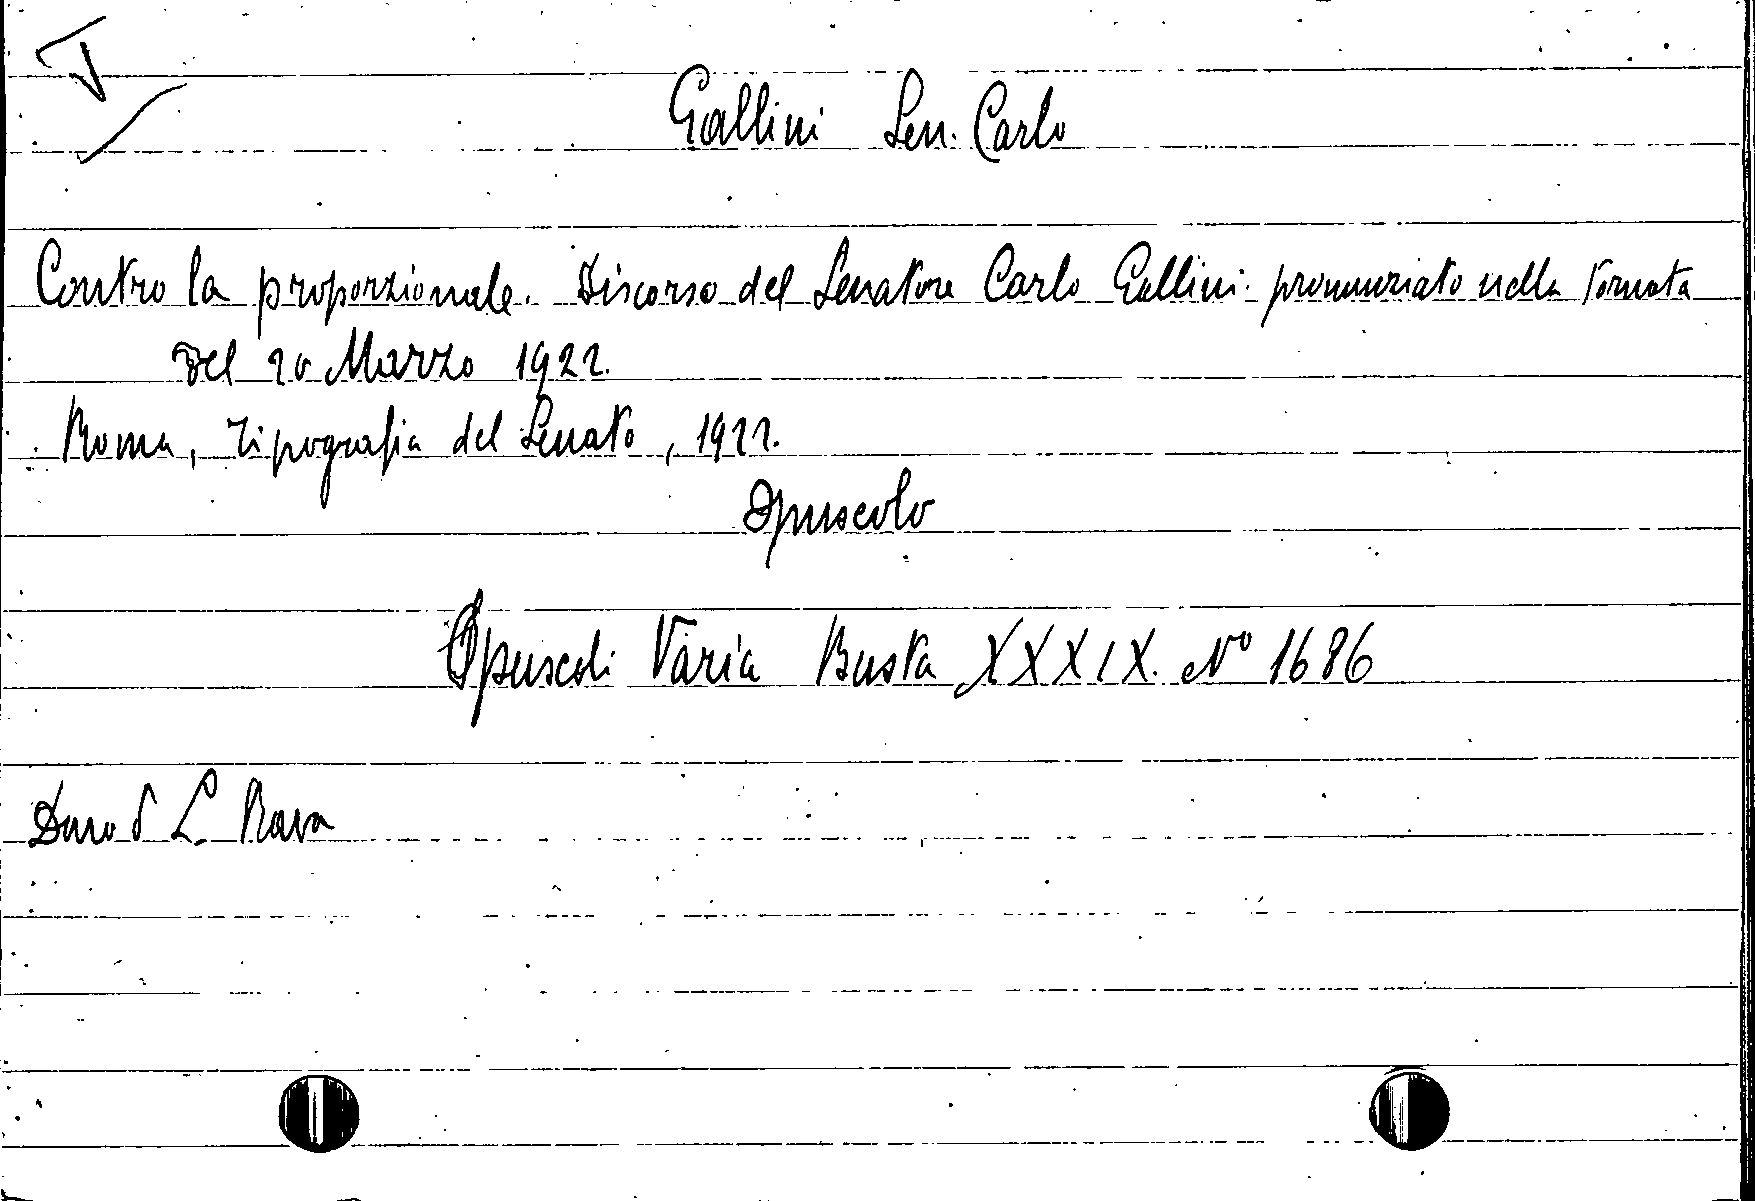 Gallini Sen. Carlo
Contro la proporzionale. Discorso del Senatore Carlo Gallini pronunziato nella tornata
del 20 Marzo 1922.
Roma, Tipografia del Senato, 1922.
Opuscolo
Opuscoli Varia Busta XXXIX. Nº 1686
L. Rava